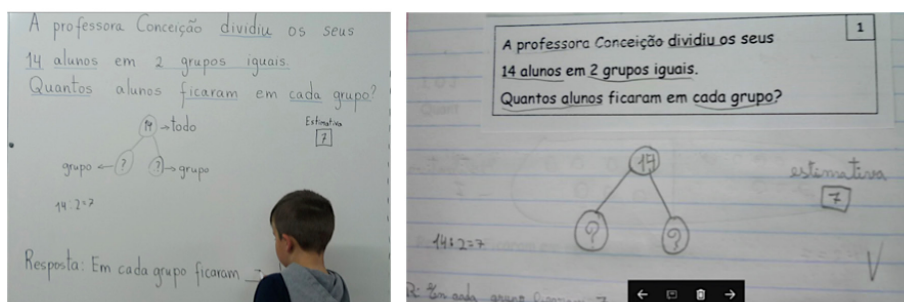 A professora Conceição dividiu os seus
14 alunos em 2 grupos iguais.
Quantos alunos ficaram em cada grupo?
14 → todo
Estimativa
7
grupo ← ? ? → grupo
14:2=7
Resposta: Em cada grupo ficaram
1
A professora Conceição dividiu os seus
14 alunos em 2 grupos iguais.
Quantos alunos ficaram em cada grupo?
14
estimativa
7
? ?
14:2=7
R: Em cada grupo ficaram 7